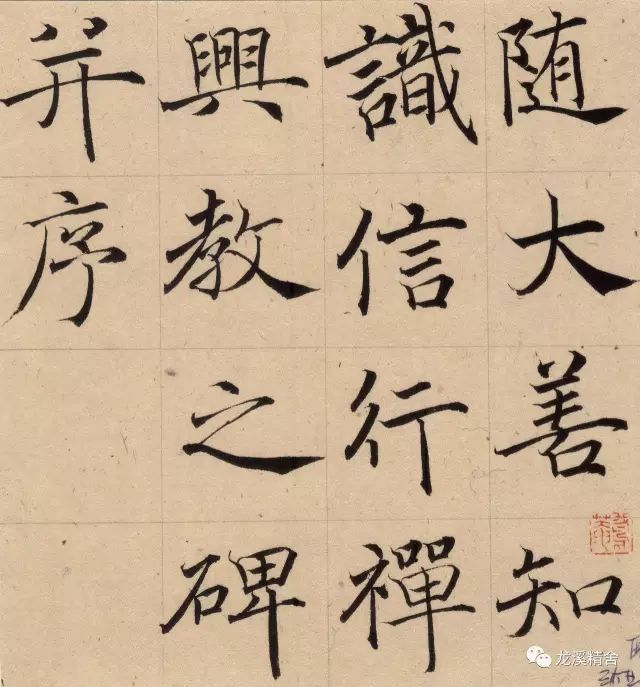 随大善知
識信行禪
興教之碑
并序
龙溪精舍